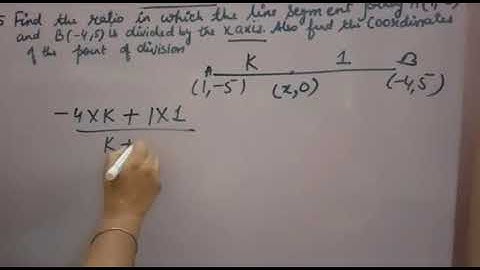 5 Find the ratio in which the line segment
and B(-4,5) is divided by the x axis. Also find the Coordinates
of the point of division
K 1
A B
(1,-5) (x,0) (-4,5)
-4XK + 1X1
K+